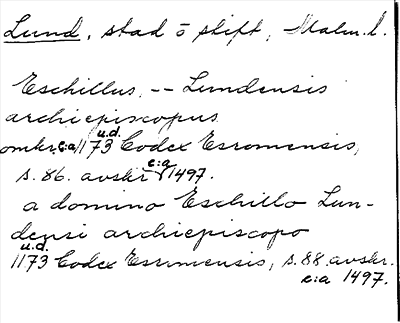 Lund, stad o stift, Malm.l.
Eschillus, -- Lundensis
archiepiscopus
omkr. c:a 1173 u.d. Codex Esromensis,
s. 86. avskr. c:a 1497.
a domino Eschillo Lun-
densi archiepiscopo
u.d.
1173 Codex Esromensis, s. 88. avskr.
c:a 1497.